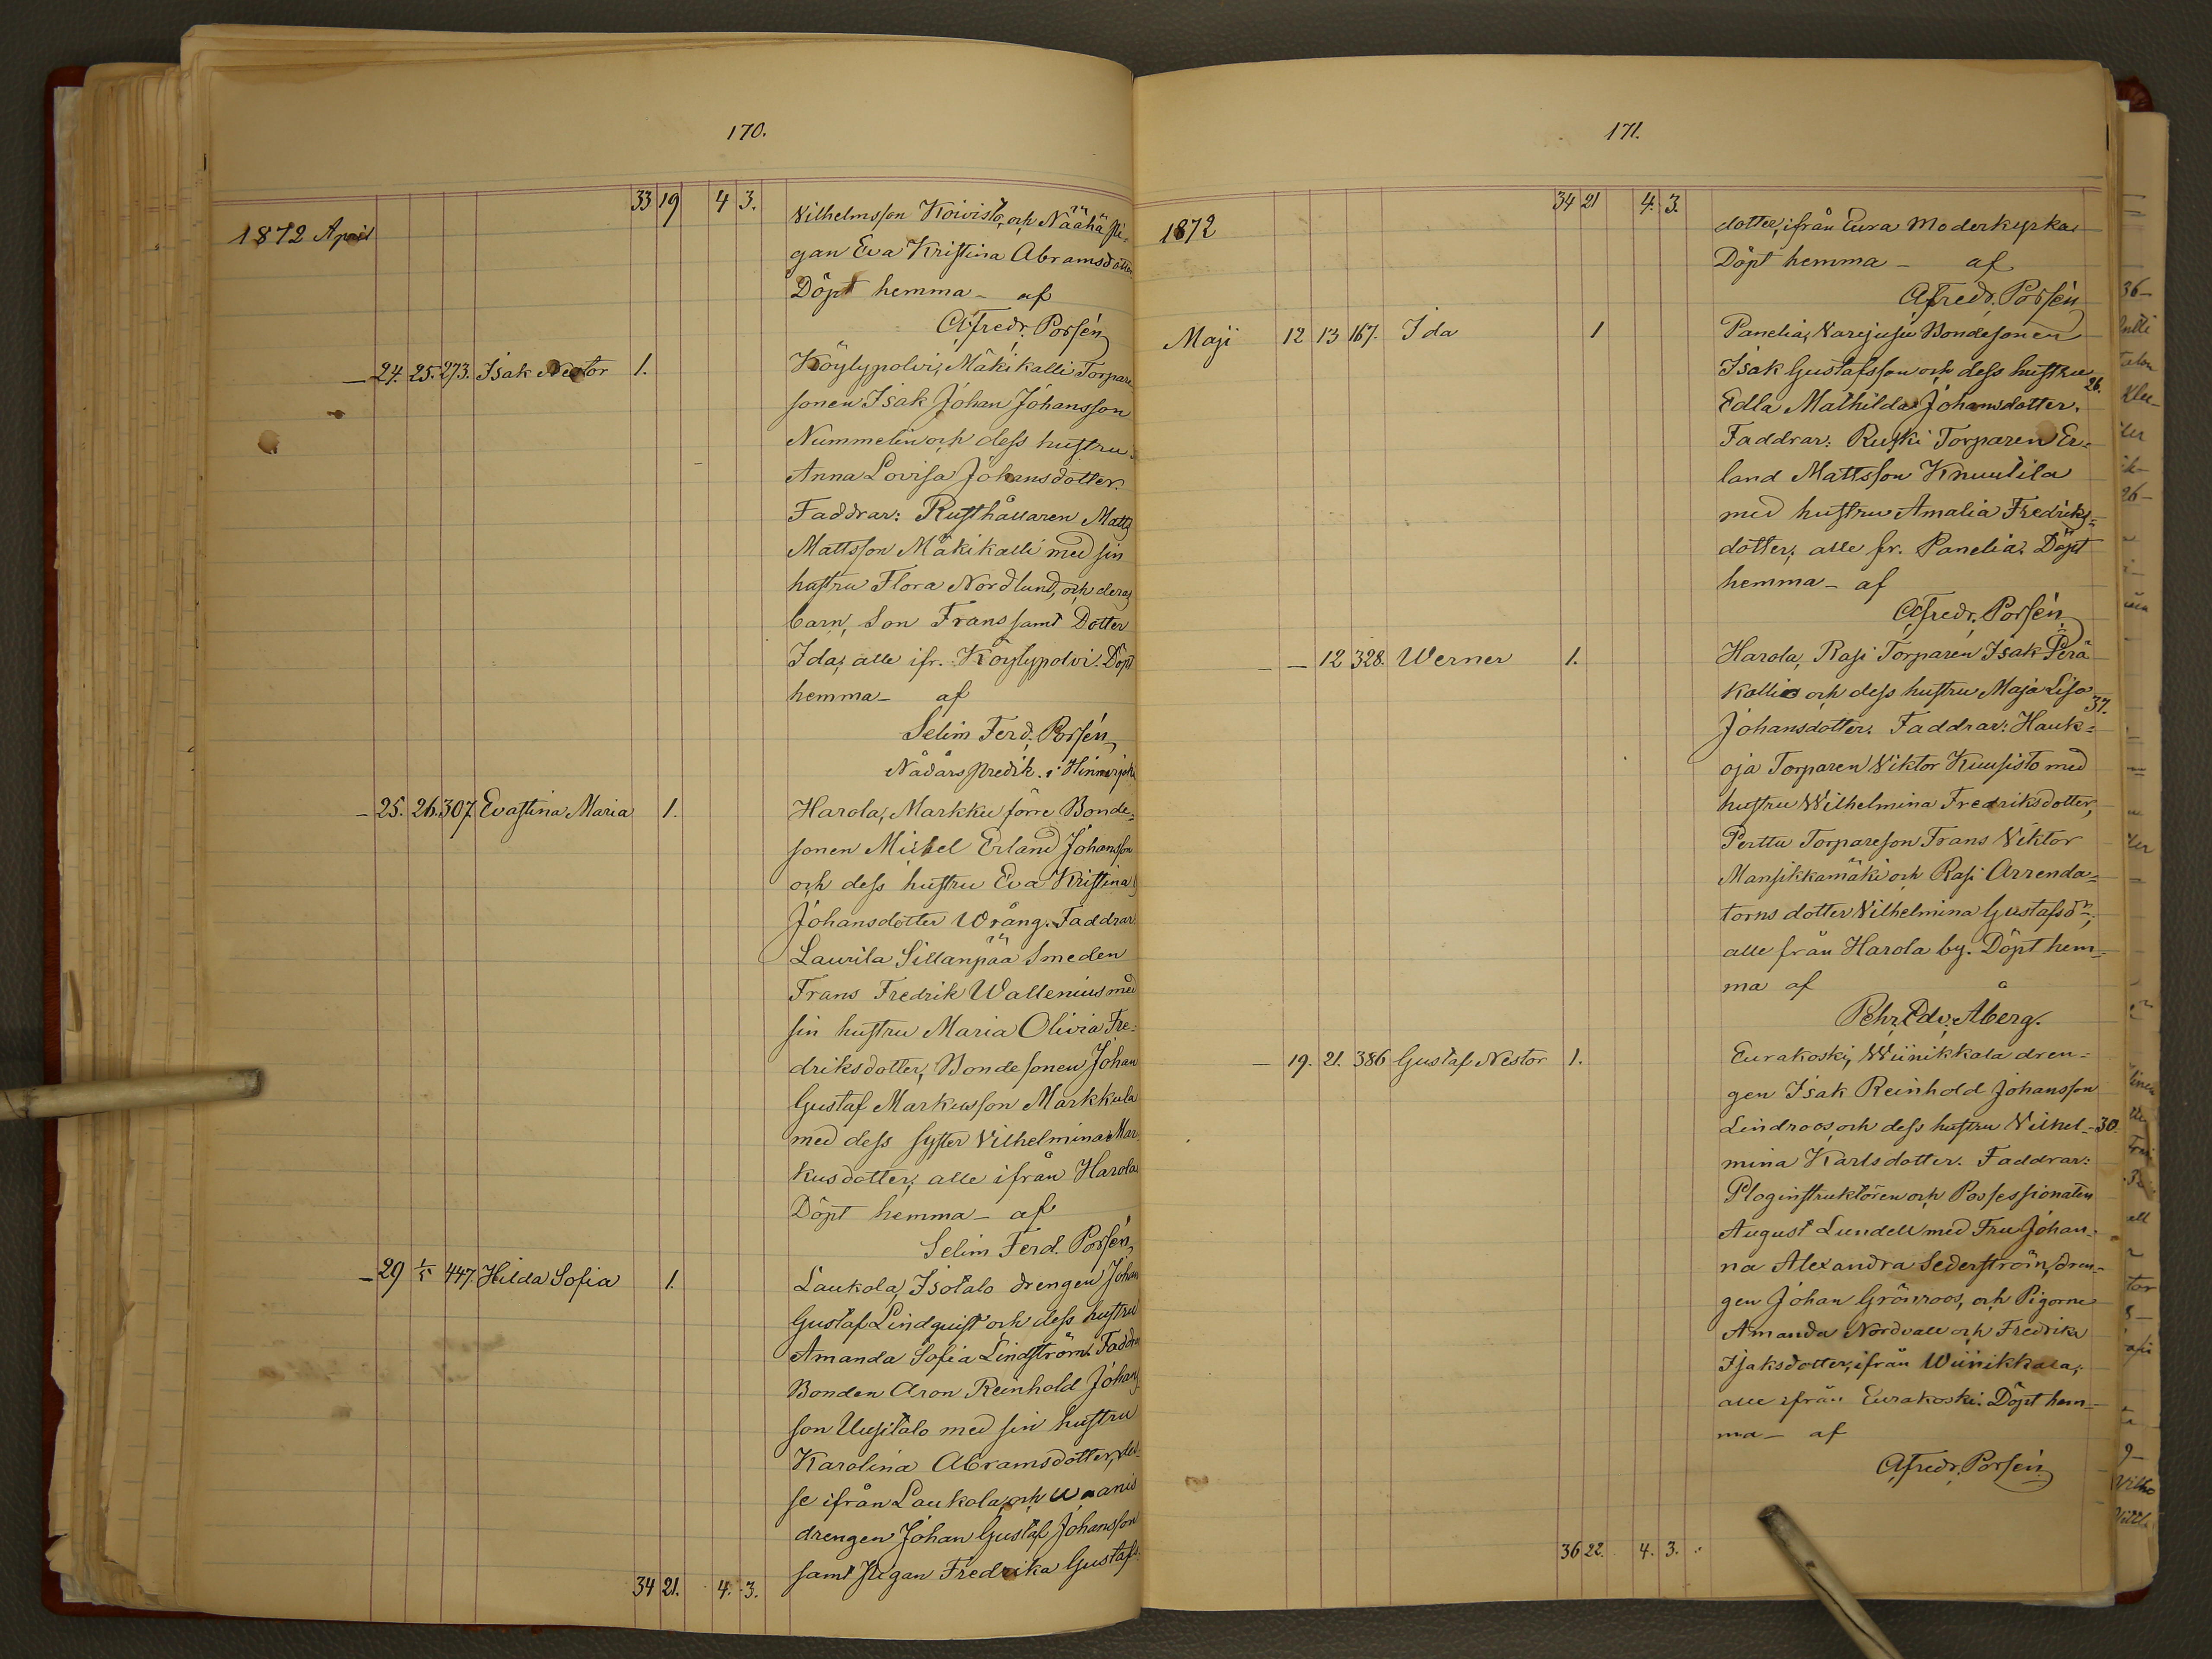 170.
33 19 4 3.
1872 April
Vilhelmsson Koivisto, och Näähä pi-
gan Eva Kristina Abramsdotter
Döpt hemma – af
Alfredr. Porsén
– 24. 25. 273. Isak Nestor 1. Köylypolvi, Mäkikalli Torpare
sonen Isak Johan Johansson
Nummelin och dess hustru
Anna Lovisa Johansdotter.
Faddrar: Rusthållaren Matts
Mattsson Mäkikalli med sin
hustru Flora Nordlund, och deras
barn, Son Frans samt Dotter
Ida, alle ifr. Köylypolvi. Döpt
hemma – af
Selim Ferd. Porsén,
Nådårspredik. i Hinnerjoki
– 25. 26. 307. Evastina Maria 1. Harola, Markku förre Bonde-
sonen Mickel Erland Johansson
och dess hustru Eva Kristina
Johansdotter Wrång. Faddrar:
Laurila Sillanpää Smeden
Frans Fredrik Wallenius med
sin hustru Maria Olivia Fre-
driksdotter, Bondesonen Johan
Gustaf Markusson Markkula
med dess syster Vilhelmina Mar-
kusdotter, alle ifrån Harola
Döpt hemma – af
Selim Ferd. Porsén,
– 29 1/5 447. Hilda Sofia 1. Laukola, Isotalo drengen Johan
Gustaf Lindquist och dess hustru
Amanda Sofia Lindström. Faddra
Bonden Aron Reinhold Johans
son Uusitalo med sin hustru
Karolina Abramsdotter, des-
se ifrån Laukola, och
drengen Johan Gustaf Johansson
samt pigan Fredrika Gustafs-
34 21. 4. 3.
171.
34 21 4. 3.
1872
dotter, ifrån Eura Moderkyrka
Döpt hemma – af
Alfredr. Porsén
Maji 12 13 167. Ida 1 Panelia, Varjusu Bondesonen
Isak Gustafsson och dess hustru
Edla Mathilda Johansdotter. 26.
Faddrar: Ruski Torparen Er-
land Mattsson Knuutila
med hustru Amalia Fredriks-
dotter, alle fr. Panelia. Döpt
hemma – af
Alfredr. Porsén
– – 12 328. Werner 1. Harola, Rasi Torparen Isak Perä
kallio och dess hustru Maja Lisa
Johansdotter. Faddrar: Hauk- 37.
oja Torparen Viktor Kuusisto med
hustru Wilhelmina Fredriksdotter,
Perttu Torpareson Frans Viktor
Mansikkamäki och Rasi Arrenda-
torns dotter Vilhelmina Gustafsdr,
alle från Harola by. Döpt hem-
ma af
Pehr. Edv. Åberg.
– 19. 21. 386 Gustaf Nestor 1. Eurakoski, Wiinikkala dren-
gen Isak Reinhold Johansson
Lindroos, och dess hustru Vilhel- 30.
mina Karlsdotter. Faddrar:
Ploginstruktören och Possessionaten
August Lundell med Fru Johan-
na Alexandra Sederström, dren-
gen Johan Grönroos, och Pigorne
Amanda Nordvall och Fredrika
Isaksdotter, ifrån Wiinikkala,
alle ifrån Eurakoski. Döpt hem-
ma – af
Alfredr. Porsén
36 22. 4. 3.